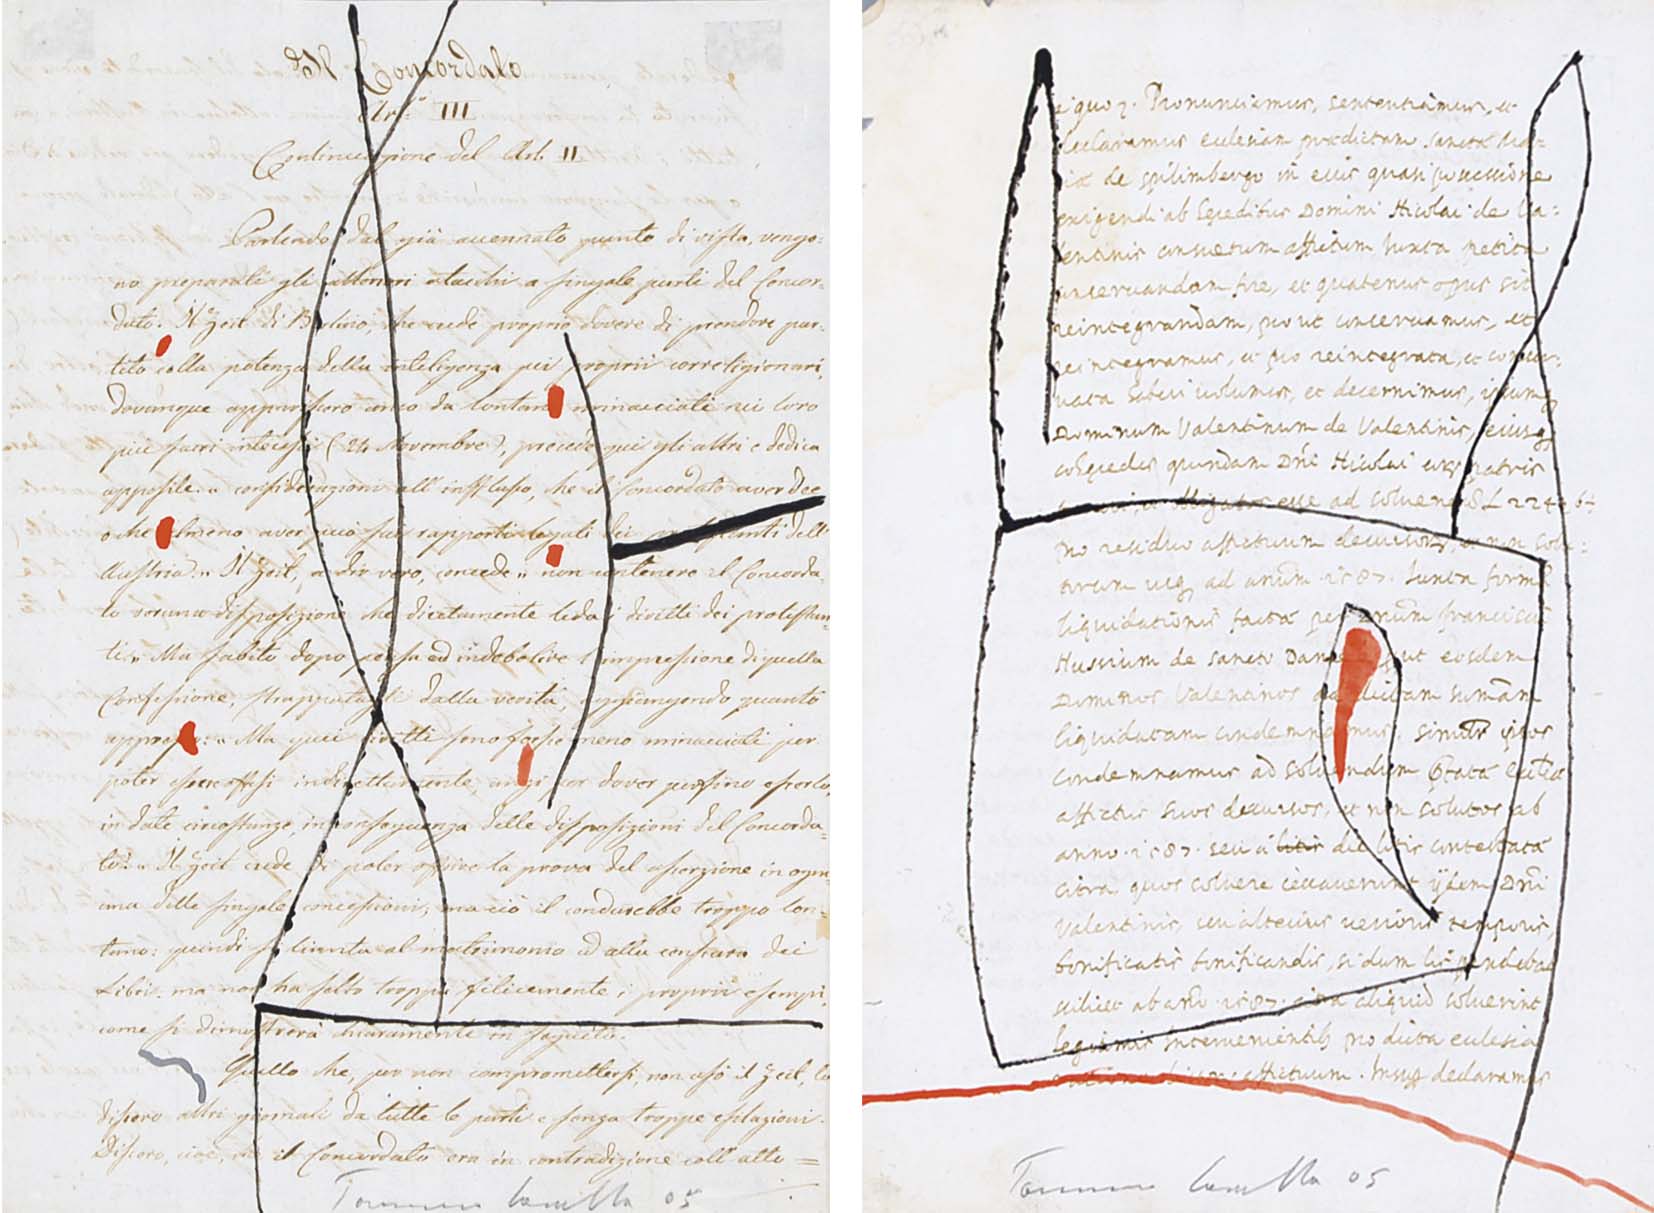 Il Concordato
Art.º III
Continuazione del Art. II
Partendo dal già accennato punto di vista, vengo=
no preparati gli ulteriori attacchi a singole parti del Concor=
dato. Il Zeit di Berlino, che crede proprio dovere di prendere par=
tito colla potenza della intelligenza pei proprii correligionari,
dovunque apparissero anco da lontano minacciati nei loro
più sacri interessi (24 Novembre), precede qui gli altri e dedica
apposite considerazioni all' che il Concordato aver dee
o che almeno aver può sui rapporti legali dei protestanti dell'
Austria." Il Zeit, a dir vero, concede "non contenere il Concorda
to veruna disposizione che direttamente leda i diritti dei protestan=
ti." Ma subito dopo cerca ed indebolire l'impressione di quella
Confessione, strappatagli dalla verità, aggiungendo quanto
appresso: "Ma quei diritti sono forse meno minacciati per
poter essere offesi indirettamente, anzi per dover persino esserlo,
in date circostanze, in conseguenza delle disposizioni del Concorda=
to?" Il Zeit crede di poter offrire la prova del asserzione in ogn=
una delle singole concessioni; ma ciò il condurebbe troppo lon=
tano: quindi si limita al matrimonio ed alla censura dei
Libri. ma non ha scelto troppo felicemente i proprii esempi,
come si dimostrerà chiaramente in seguito.
Quello che, per non compromettersi, non osò il Zeit, lo
dissero altri giornali da tutte le parti e senza troppe esitazioni.
Dissero, cioè, che il Concordato era in contradizione coll' atto=
Tommaso 05
Pronunciamus, sententiamus, et
declaramus eclesiam prædictam sanctæ Ma=
riæ de Spilimbergo in eius quasi possessione
exigendi ab heredibus Domini Nicolai de Va=
lentinis consuetum affictum iuxta petita
conservandam fore, et quatenus opus sit
reintegrandam, prout conservamus, et
reintegramus, et pro reintegrata, et conser=
vata haberi volumus, et decernimus, ipsumq
Dominum Valentinum de Valentinis, eiusq
coheredes quondam Dni Nicolai patris
obligatos esse ad solvend
pro residuo affictuum decursorum, et non solu=
torum usq ad annum 1587. iuxta formã
liquidationis factã per Dnum Franciscũ
Hussium de Sancto Daniele, prout eosdem
Dominos Valentinos ad dictam sumãm
liquidatam condemnamus, similr ipsos
condemnamus ad solvendum pdtatã eccliã
affictus suos decursos, et non solutos ab
anno 1587. seu a litis die litis contestatã
citra quos solvere cessaverunt ijdem Dni
Valentinis, seu alterius verioris temporis,
bonificatis bonificandis, si dum lis pendebat
scilicet ab anno 1587. citra aliquid solverint
legitimis intervenientib pro dicta eclesia
affictuum. Insuper declaramus
Tommaso 05